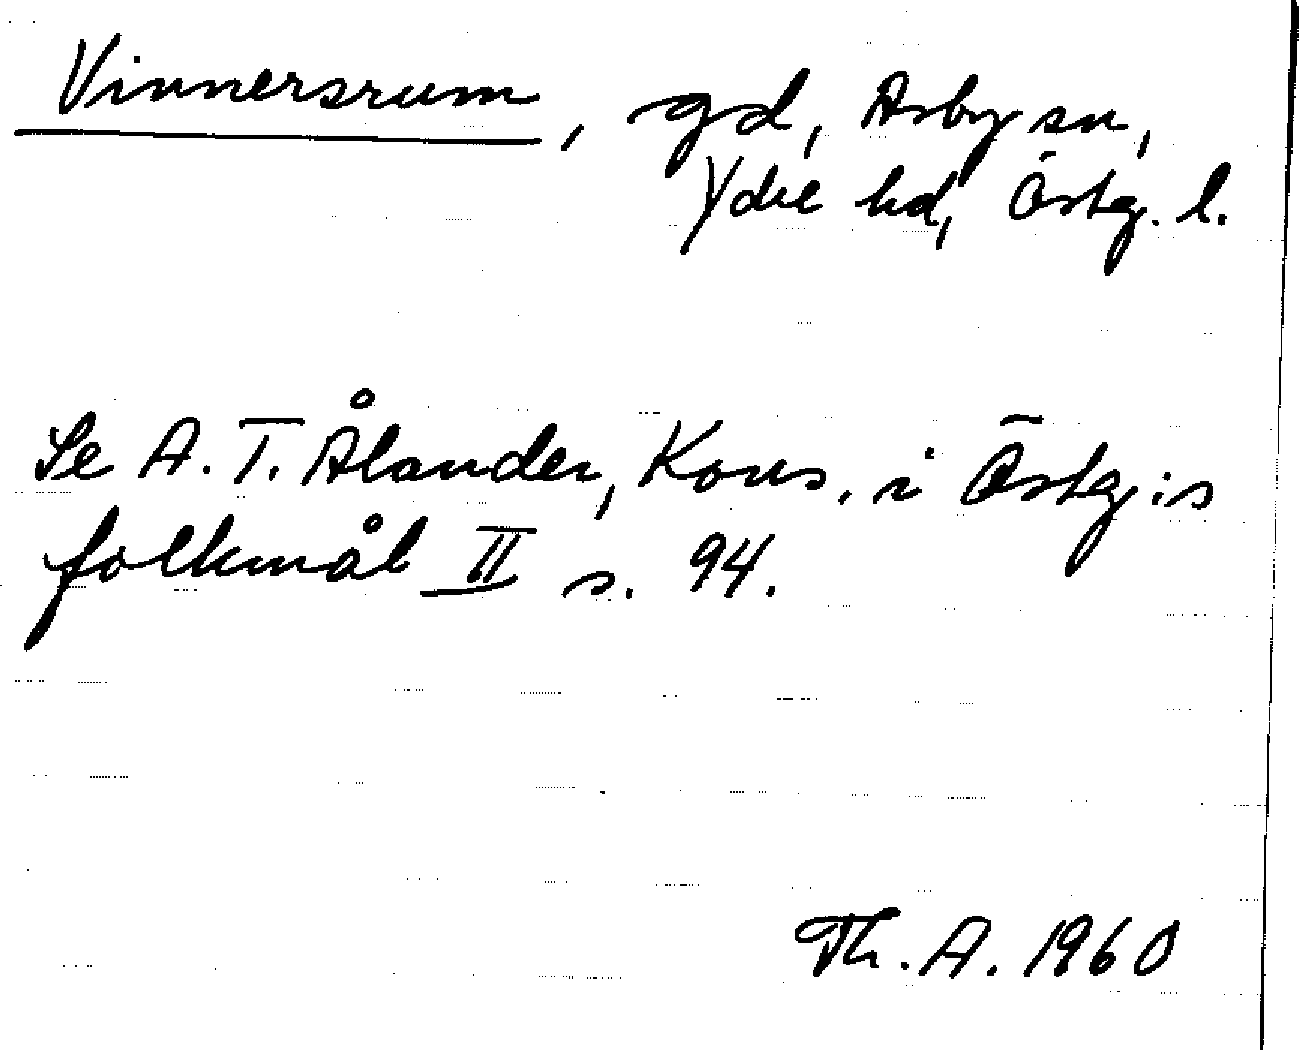 Vinnersrum, gd, Asby sn,
Ydre hd, Östg. l.
Se A. T. Ålander, Kons. i Östg:s
folkmål II s. 94.
Th. A. 1960